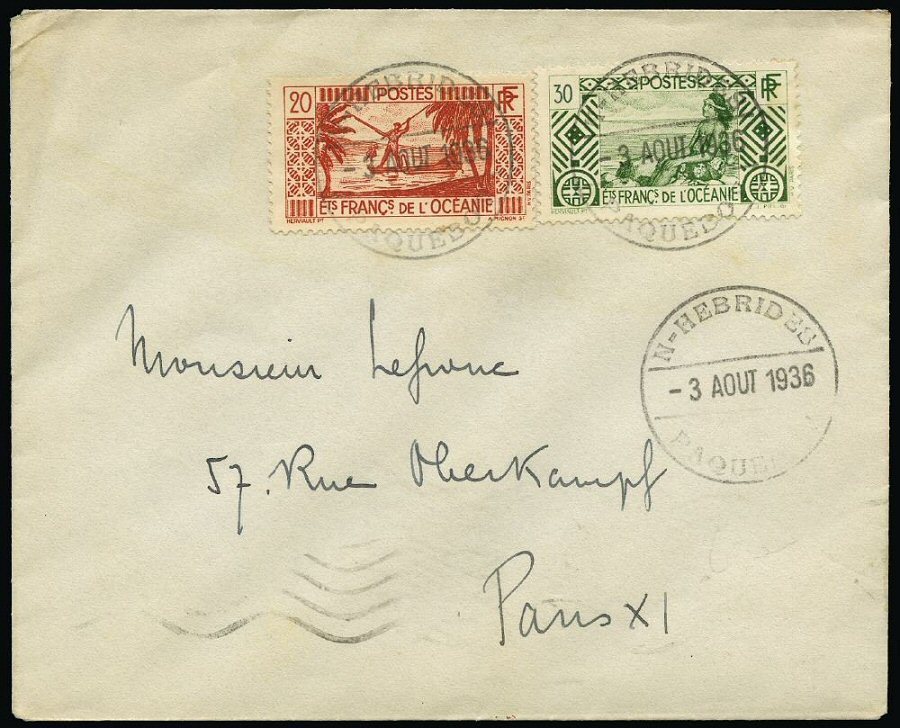 20 POSTES RF
ETS FRANÇS DE L'OCÉANIE
HERVIAULT PT MIGNON SC
30 POSTES RF
ETS FRANÇS DE L'OCÉANIE
HERVIAULT PT
N-HEBRIDES
-3 AOUT 1936
PAQUEBO
N-HEBRIDES
-3 AOUT 1936
PAQUEBO
N-HEBRIDES
-3 AOUT 1936
PAQUEBO
Monsieur Lefranc
57. Rue Oberkampf
Paris XI